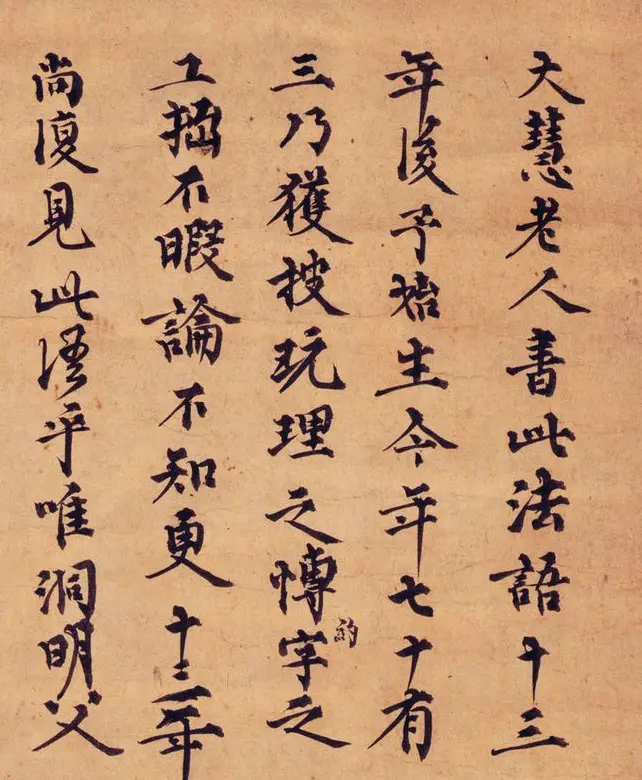 大慧老人書此法語十三
年後予始生今年七十有
三乃獲披玩理之愽約字之
工拙不暇論不知更十三年
尚復見此乎唯洞明父